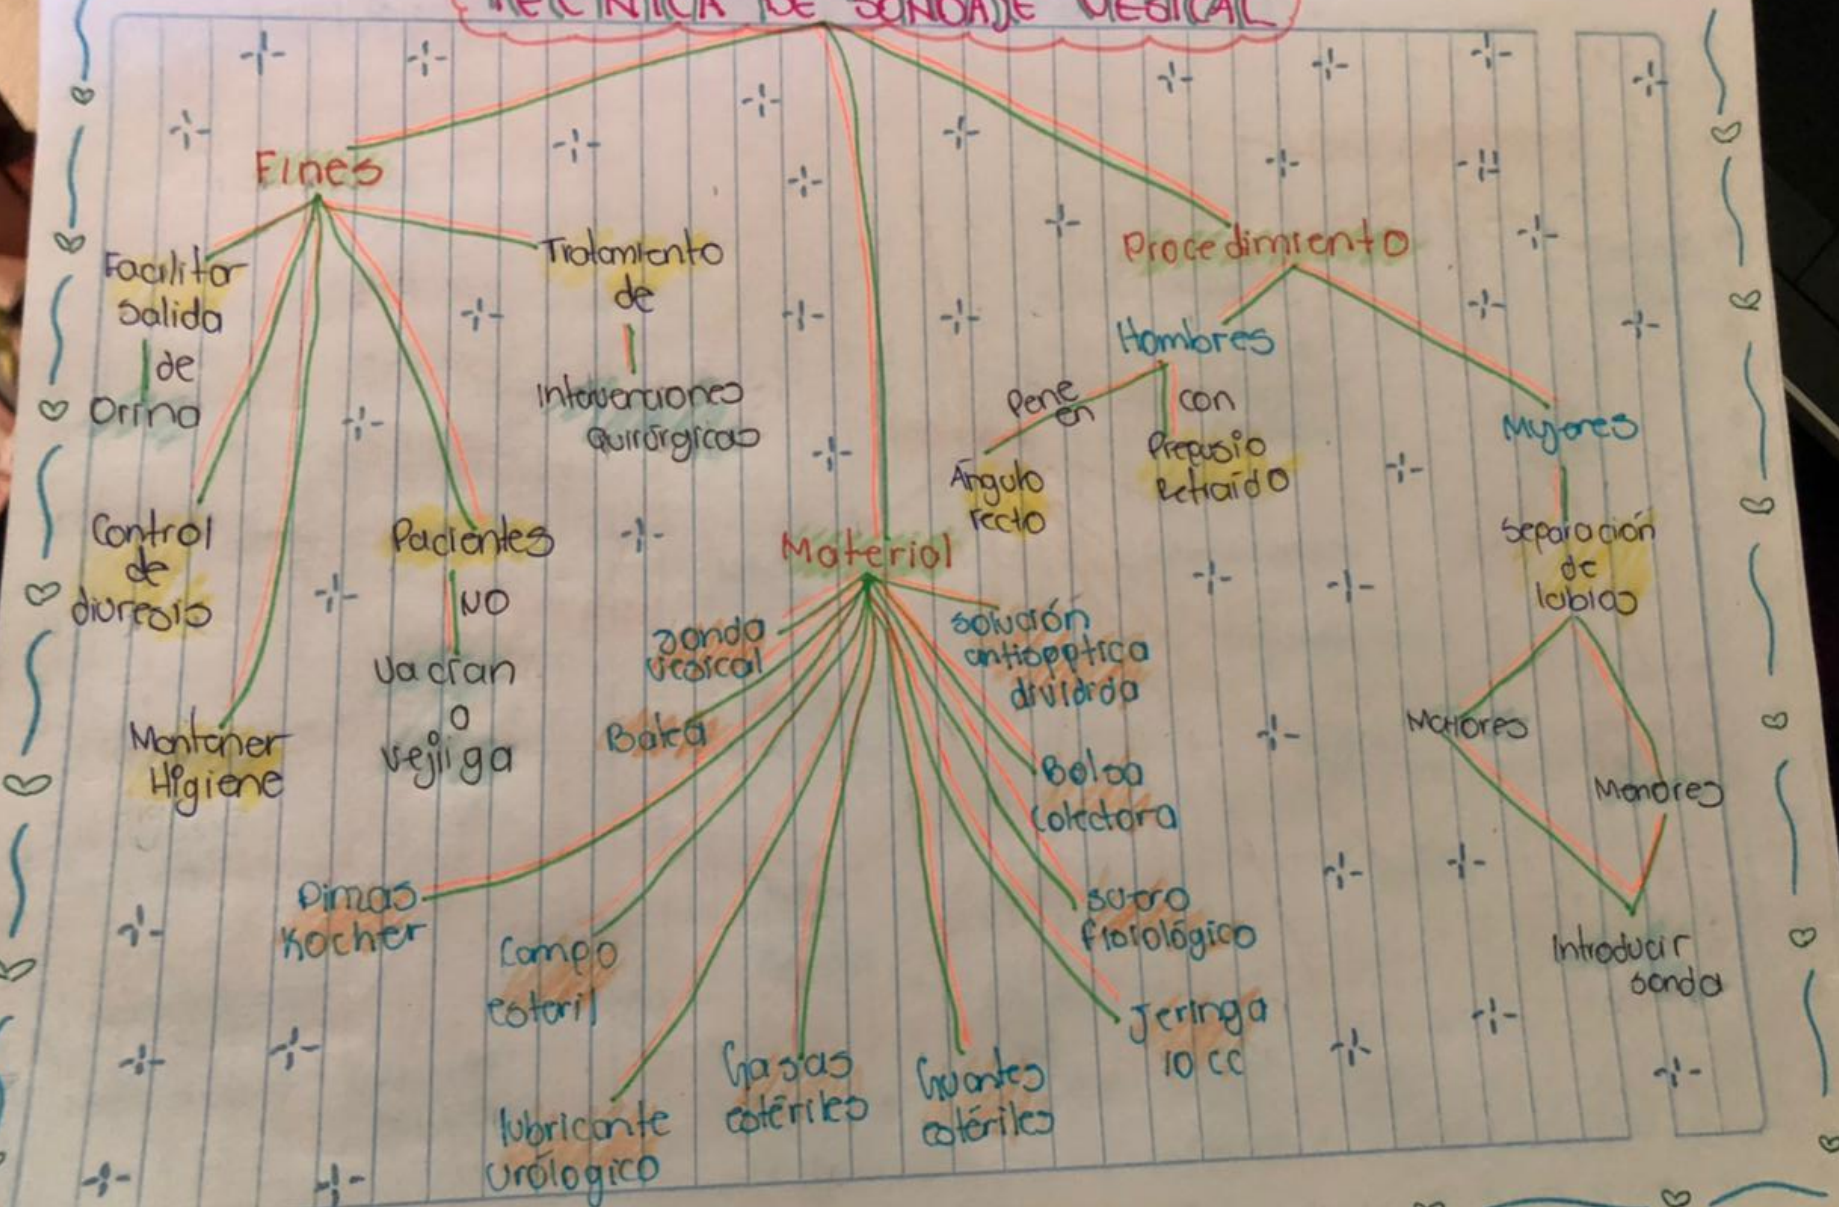 TÉCNICA DE SONDAJE VESICAL
Fines
Facilitar
Salida
de
Orina
Control
de
diuresis
Mantener
Higiene
Pacientes
NO
Vacían
o
vejiga
Tratamiento
de
Intervenciones
Quirúrgicas
Material
Sonda
vesical
Batea
Pinzas
Kocher
Campo
esteril
lubricante
urólogico
Gasas
estériles
Guantes
estériles
Jeringa
10 cc
suero
fisiológico
Bolsa
Colectora
Solución
antiséptica
dividida
Procedimiento
Hombres
Pene
en
Ángulo
recto
con
Prepusio
Retraído
Mujeres
Separación
de
labios
Mayores
Menores
Introducir
sonda